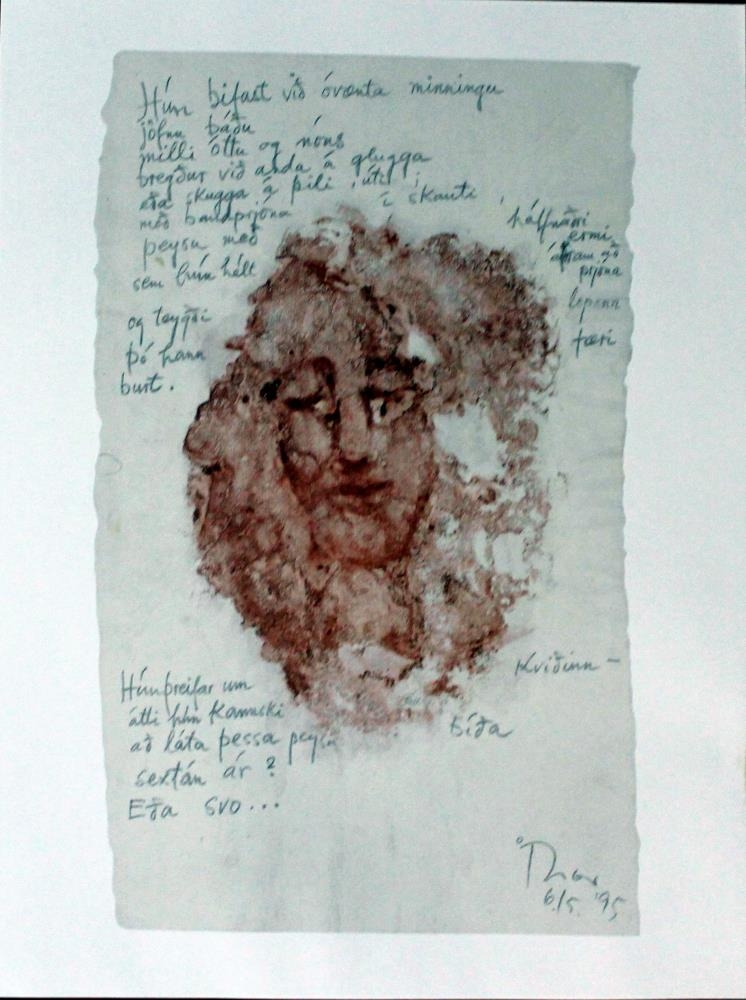 Hún bifast við óvænta minningu
jöfnu báðu
milli óttu og nóns
bregður við anda á glugga
eða skugga á þili úti
með bandprjóna í skauti
peysu með hálfnaðri
ermi
sem hún hélt áfram að
prjóna
og teygði lopann
þó hann færi
burt.
Kviðinn –
Hún þreifar um
átti hún kannski
að láta þessa peysu bíða
sextán ár?
Eða svo...
Thor
6/5 '95